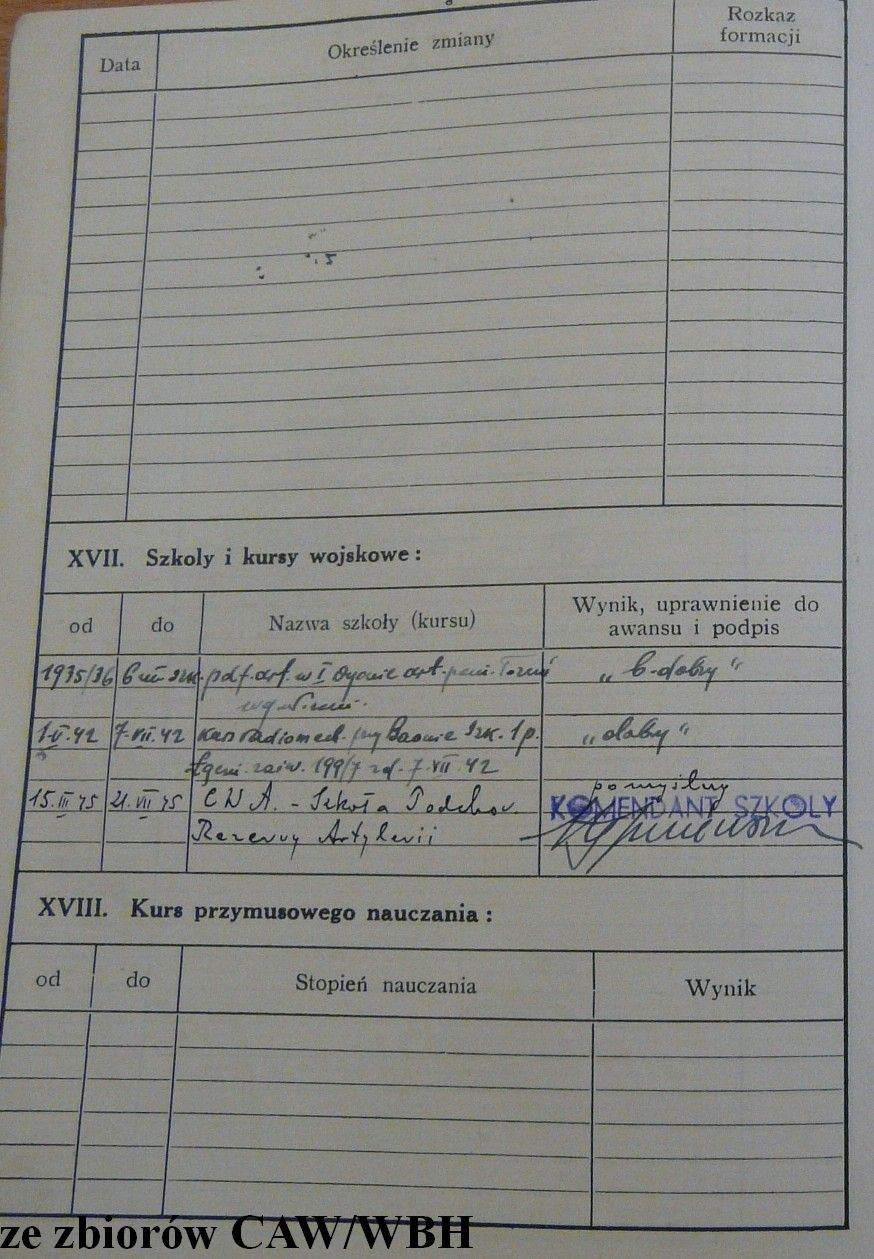 Data Określenie zmiany Rozkaz formacji
XVII. Szkoly i kursy wojskowe:
od do Nazwa szkoły (kursu) Wynik, uprawnienie do awansu i podpis
1935/36 szk. pdf. art. w I Dyonie art. Toruń „b. dobry"
1.V.42 7.VII.42 kurs radiomech. przy Baonie Szk. 1 p. „dobry"
199/7 7.VII.42
pomyślny
15.III 45 21.VII 45 C W A. - Szkoła Podchor. KOMENDANT SZKOLY
Rezerwy Artylerii
XVIII. Kurs przymusowego nauczania:
od do Stopień nauczania Wynik
ze zbiorów CAW/WBH